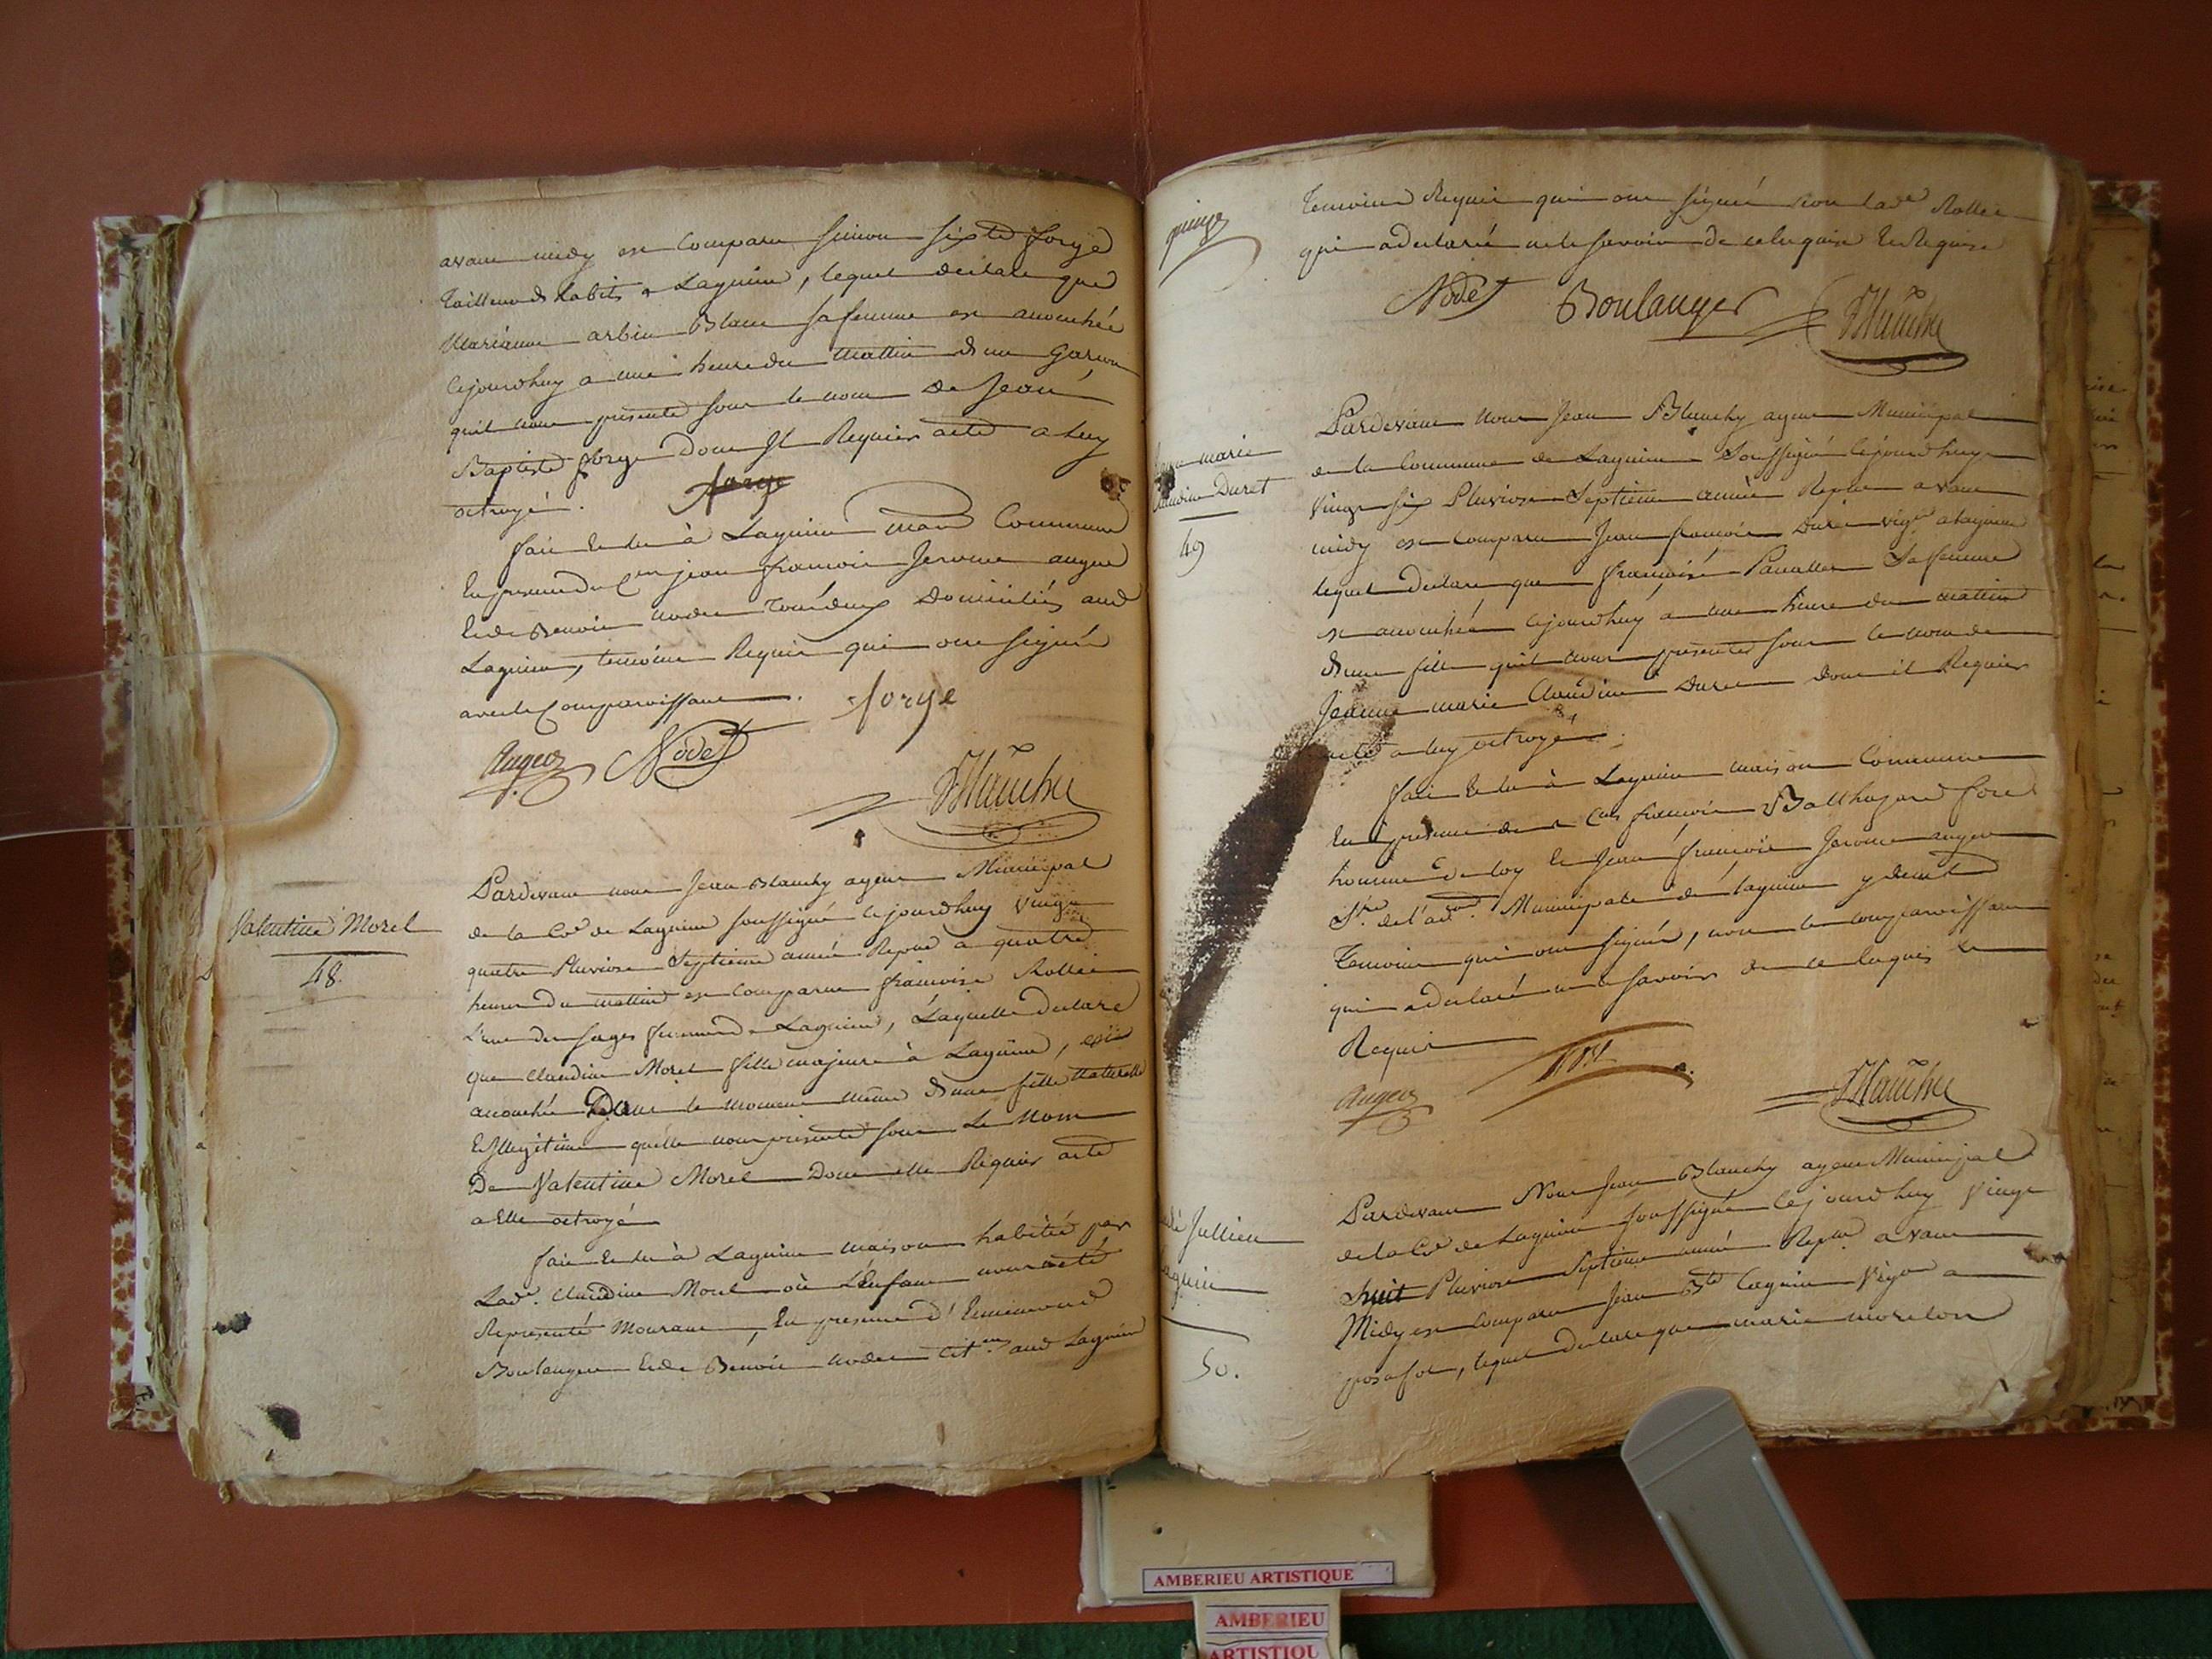 avant midy est comparu Simon Sixte forge
Tailleur d habits a Lagnieu, lequel declare que
Marianne arbin Blanc sa femme est accouchée
cejourdhuy a une heure du matin d un garcon
quil nous presente sous le nom de Jean
Baptiste forge dont Il Requier acte a luy
octroyé. forge
fait En lu à Lagnieu maon Commune
En presence du Cen jean francois Jerome auger
Et de Benoit nodet Tous deux domiciliés aud
Lagnieu, temoins Requis qui ont signé
avec le Comparoissant. forge
Auger Nodet
JBlanchy
Valentine Morel
48.
Pardevant nous Jean Blanchy agent Municipal
de la Cne de Lagnieu soussigné cejourdhuy vingt
quatre Pluviose Septieme année Repne a quatre
heures du mattin est comparue francoise Rollet
L'une des sages femmes de Lagnieu, Laquelle declare
que Claudine Morel fille majeure à Lagnieu, est
accouchée Dans le moment même d'une fille naturelle
Et Illegitime quelle nous presente sous Le Nom
De Valentine Morel Dont elle Requier acte
a Elle octroyé
fait En lu à Lagnieu maison habitée par
Lade. Claudine Morel où L'Enfant nous a été
Representé Mourant, En presence d'
Boulanger Et de Benoit nodet cit.ens aud Lagnieu
quinze
temoins Requis qui ont signé non lade Rollet
qui a declaré ne le savoir de ce Enquise Et Requise
Nodet Boulanger JBlanchy
marie
Claudine Duret
49
Pardevant nous Jean Blanchy agent Municipal
de la Commune de Lagnieu Soussigné cejourdhuy
vingt six Pluviose Septieme année Repne avant
midy est comparu Jean francois Duret vigon a Lagnieu
lequel declare que francoise sa femme
est accouchée cejourdhuy a une heure du matin
d'une fille quil nous presente sous le nom de
Jeanne marie Claudine Duret dont il Requier
acte a luy octroyé.
fait En lu à Lagnieu maison Commune
En presence des Cens francois Balthazard
homme de loy Et Jean francois Jerome auger
S.re de l'adon. Municipale de Lagnieu y demt
Temoins qui ont signé, non le comparoissant
qui a declaré ne le savoir de ce Enquis Et
Requis
Auger
JBlanchy
Jullien
50.
Pardevant Nous Jean Blanchy agent Municipal
de la Cne de Lagnieu soussigné cejourdhuy vingt
huit Pluviose Septieme année Repne avant
Midy est comparu Jean Bte Vigon a
posafol, lequel declare que marie morelon
AMBERIEU ARTISTIQUE
AMBERIEU
ARTISTIQU